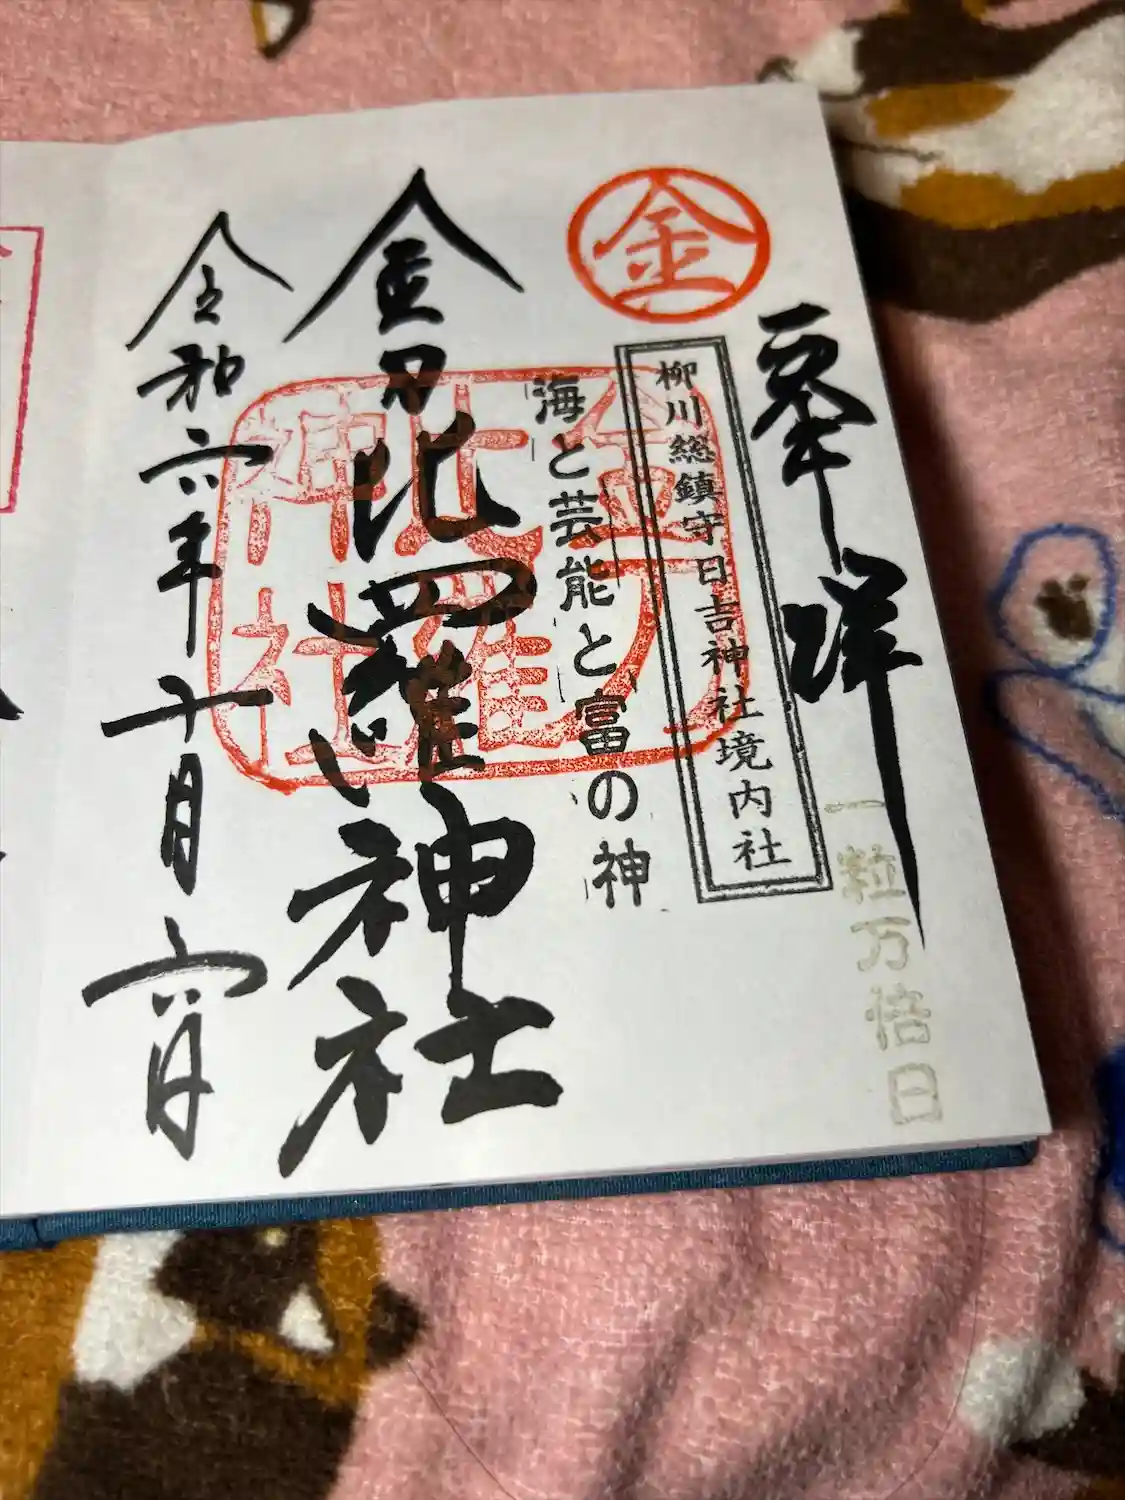 奉拝
一粒万倍日
金
柳川総鎮守日吉神社境内社
海と芸能と富の神
金刀比羅神社
金刀
比羅
神社
令和六年十月六日